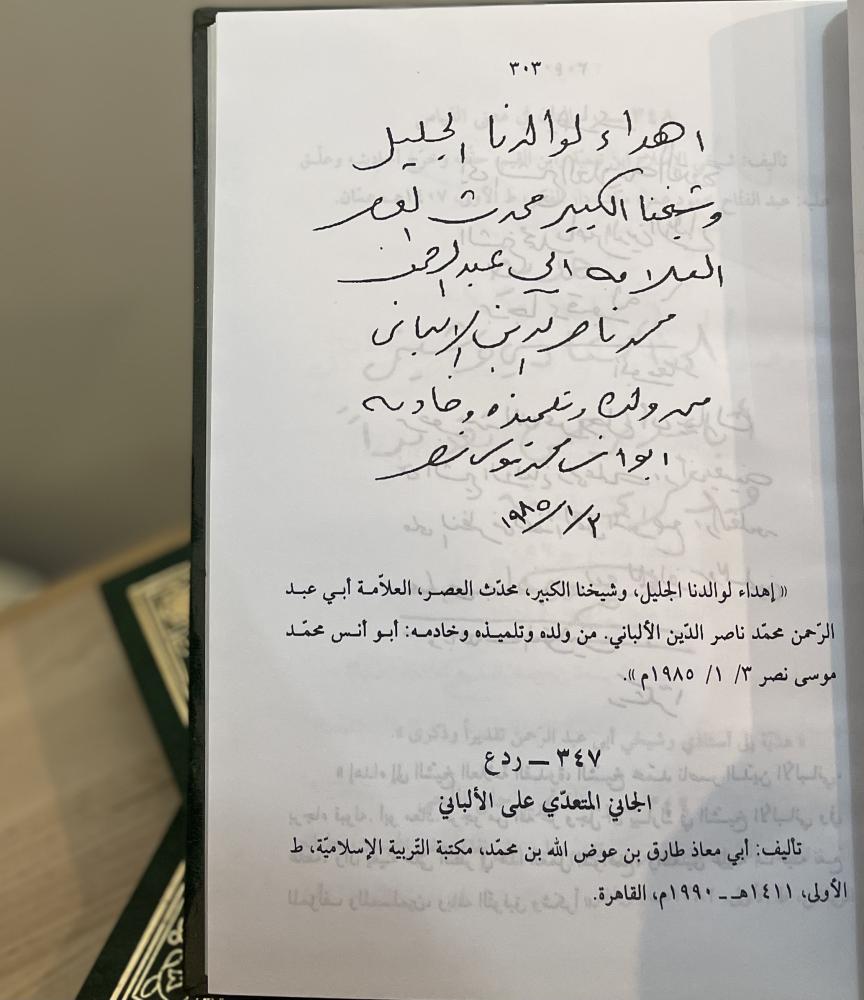 ٣٠٣
اهداء لوالدنا الجليل
وشيخنا الكبير محدث العصر
العلامه ابي عبد الرحمن
محمد ناصر الدين الالباني
من ولده وتلميذه وخادمه
ابو انس محمد موسى نصر
١٩٨٥/١/٣
« إهداء لوالدنا الجليل، وشيخنا الكبير، محدّث العصر، العلاّمة أبي عبد
الرّحمن محمّد ناصر الدّين الألباني. من ولده وتلميذه وخادمه: أبو أنس محمّد
موسى نصر ٣/ ١/ ١٩٨٥م ».
٣٤٧ ـ ردع
الجاني المتعدّي على الألباني
تأليف: أبي معاذ طارق بن عوض الله بن محمّد، مكتبة التّربية الإسلاميّة، ط
الأولى، ١٤١١هـ ـ ١٩٩٠م، القاهرة.